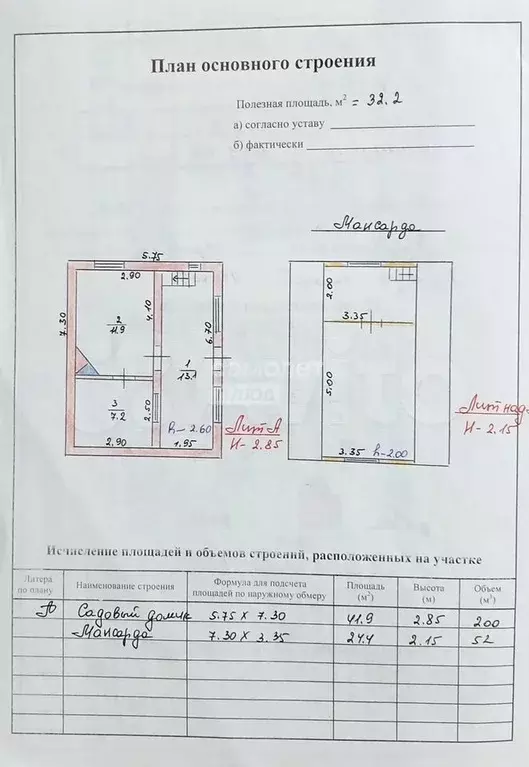 План основного строения
Полезная площадь, м² = 32.2
а) согласно уставу
б) фактически
Мансарда
5.75
2.90
7.30
4.10
6.70
2
11.9
1
13.1
3
7.2
2.50
h-2.60
2.90
1.95
Лит А
Н-2.85
2.00
3.35
5.00
3.35
h-2.00
Лит над
Н-2.15
Исчисление площадей и объемов строений, расположенных на участке
Литера по плану
Наименование строения
Формула для подсчета площадей по наружному обмеру
Площадь (м²)
Высота (м)
Объем (м³)
А Садовый домик 5.75 х 7.30 41.9 2.85 200
Мансарда 7.30 х 3.35 24.4 2.15 52